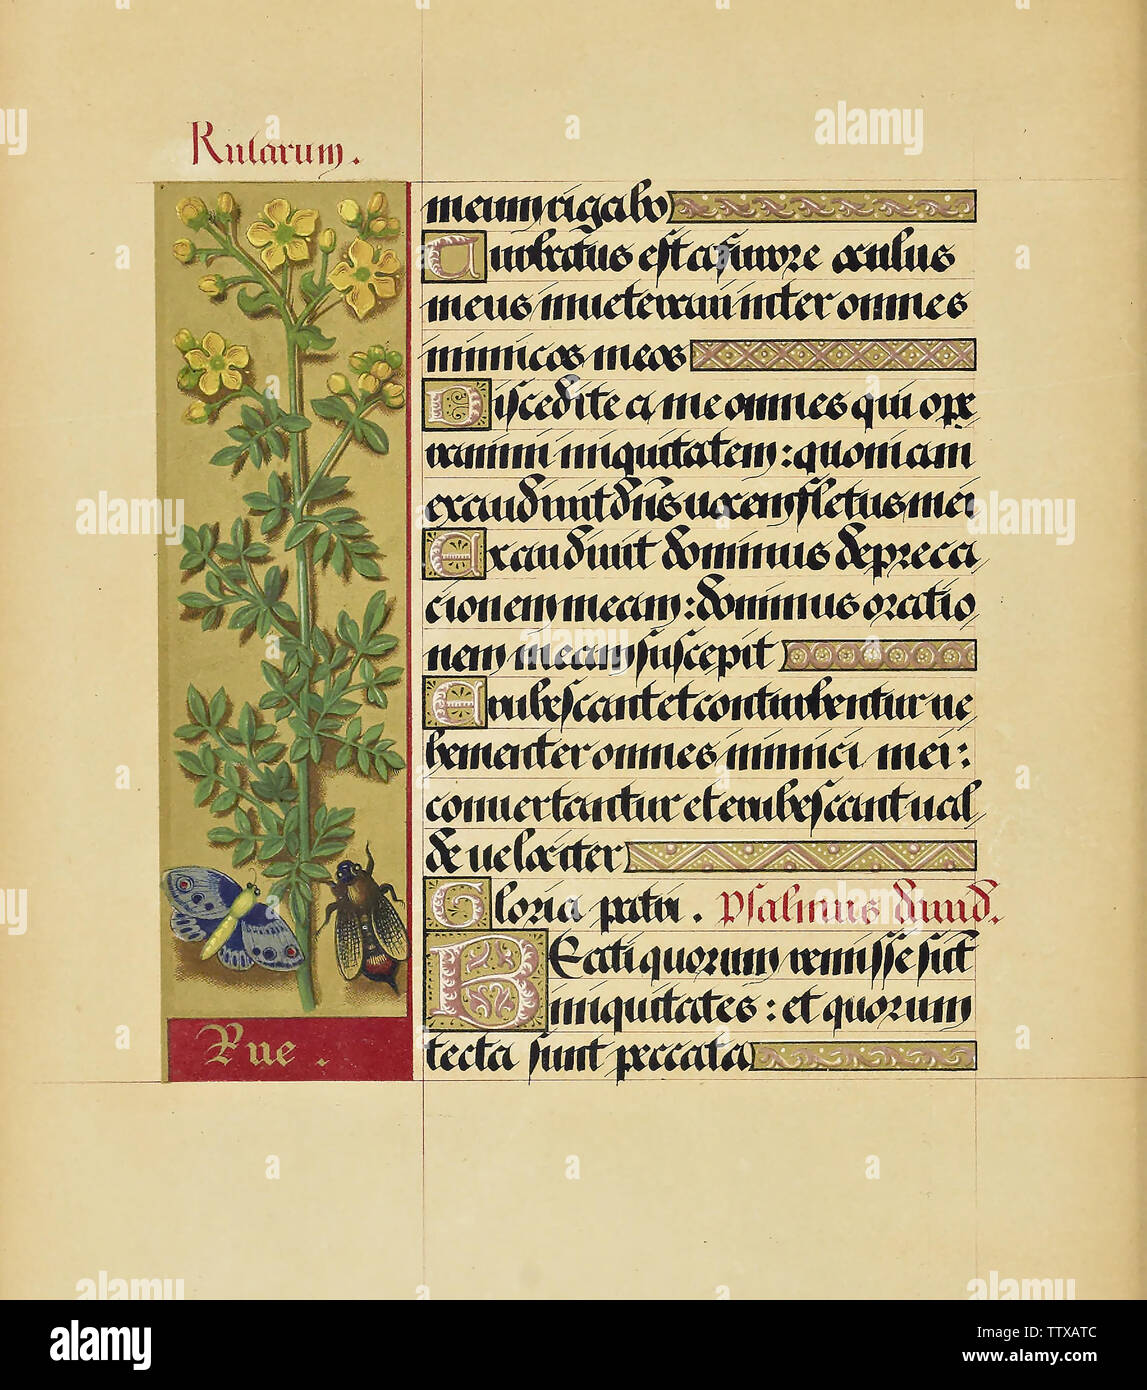 Rutarum.
meum rigabo
Turbatus est a furore oculus
meus inveteravi inter omnes
inimicos meos
Discedite a me omnes qui ope
ramini iniquitatem: quoniam
exaudivit dns vocem fletus mei
Exaudivit dominus depreca
cionem meam: dominus oratio
nem meam suscepit
Erubescant et conturbentur ve
hementer omnes inimici mei:
convertantur et erubescant val
de velociter
Gloria patri. Psalmus david.
BEati quorum remisse sūt
iniquitates: et quorum
tecta sunt peccata
Rue.
alamy
Image ID: TTXATC
www.alamy.com